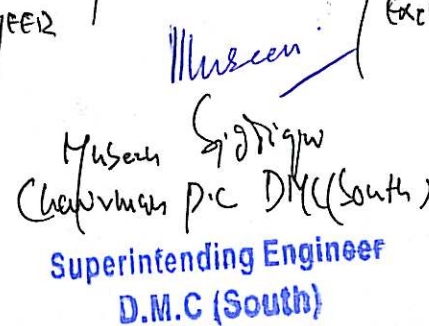 EER
Museen
Museen Siddiqui
Chairman P.C DMC(South)
Superintending Engineer
D.M.C (South)